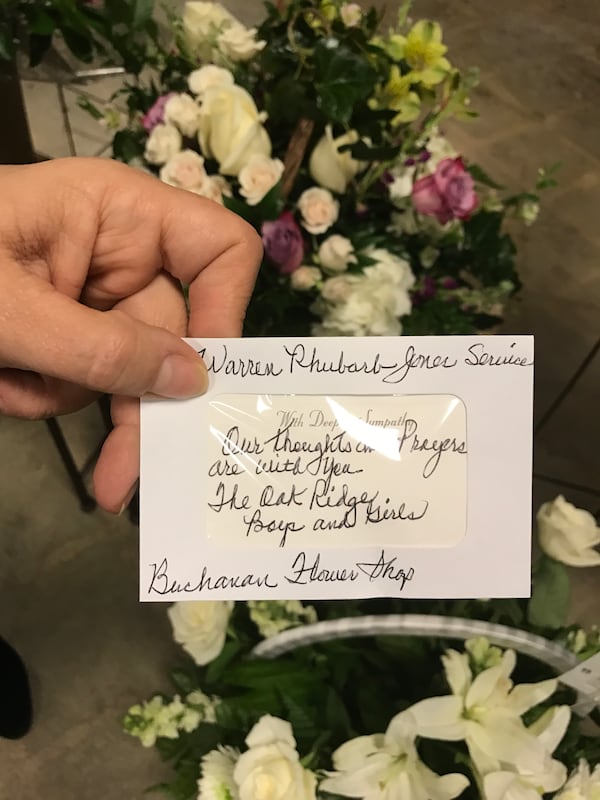 Warren Rhubarb-Jones Service
With Deepest Sympathy
Our thoughts and Prayers
are with you
The Oak Ridge
Boys and Girls
Buchanan Flower Shop